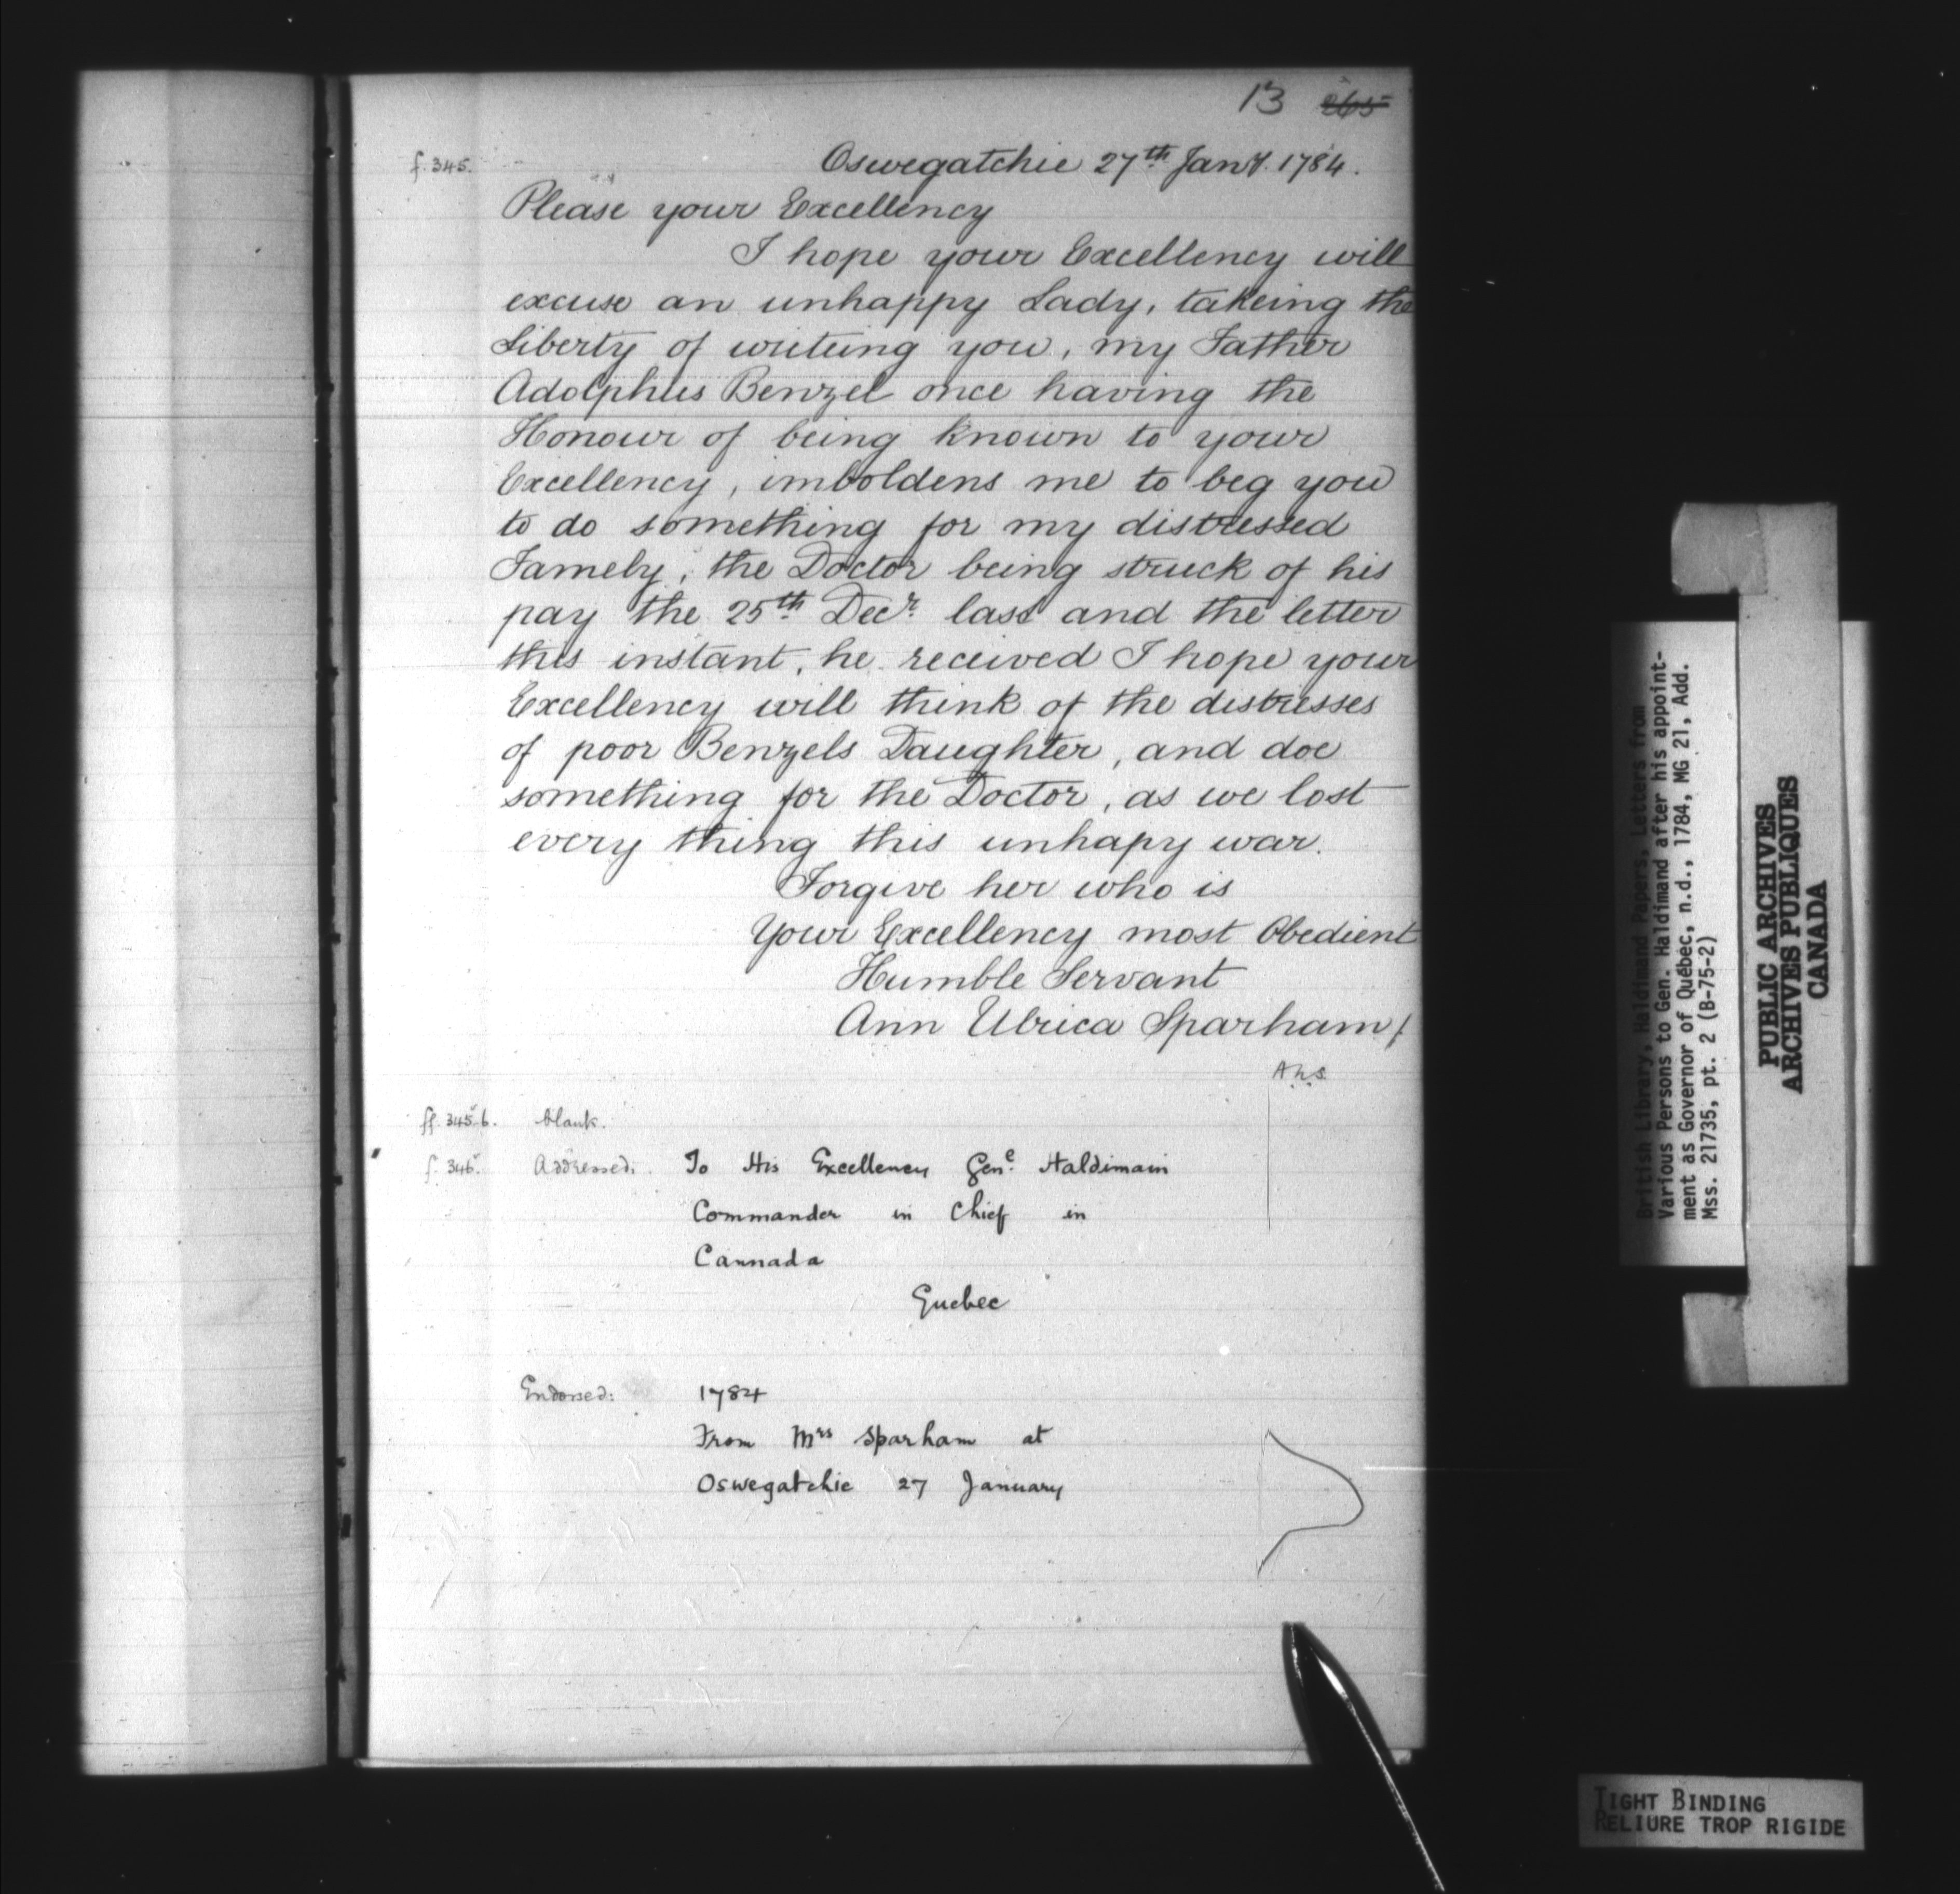 13 265
f. 345. Oswegatchie 27th Jany. 1784.
Please your Excellency
I hope your Excellency will
excuse an unhappy Lady, takeing the
Liberty of writeing you, my Father
Adolphus Benzel once having the
Honour of being known to your
Excellency, imboldens me to beg you
to do something for my distressed
Famely, the Doctor being struck of his
pay the 25th Decr. last and the letter
this instant, he received I hope your
Excellency will think of the distresses
of poor Benzels Daughter, and doe
something for the Doctor, as we lost
every thing this unhapy war.
Forgive her who is
Your Excellency most Obedient
Humble Servant
Ann Ulrica Sparham
ff. 345 b. blank.
f. 346. Addressed: To His Excellency Genl. Haldimain
Commander in Chief in
Cannada
Quebec
Endorsed: 1784
From Mrs Sparham at
Oswegatchie 27 January
British Library, Haldimand Papers, Letters from
Various Persons to Gen. Haldimand after his appoint-
ment as Governor of Québec, n.d., 1784, MG 21, Add.
Mss. 21735, pt. 2 (B-75-2)
PUBLIC ARCHIVES
ARCHIVES PUBLIQUES
CANADA
TIGHT BINDING
RELIURE TROP RIGIDE